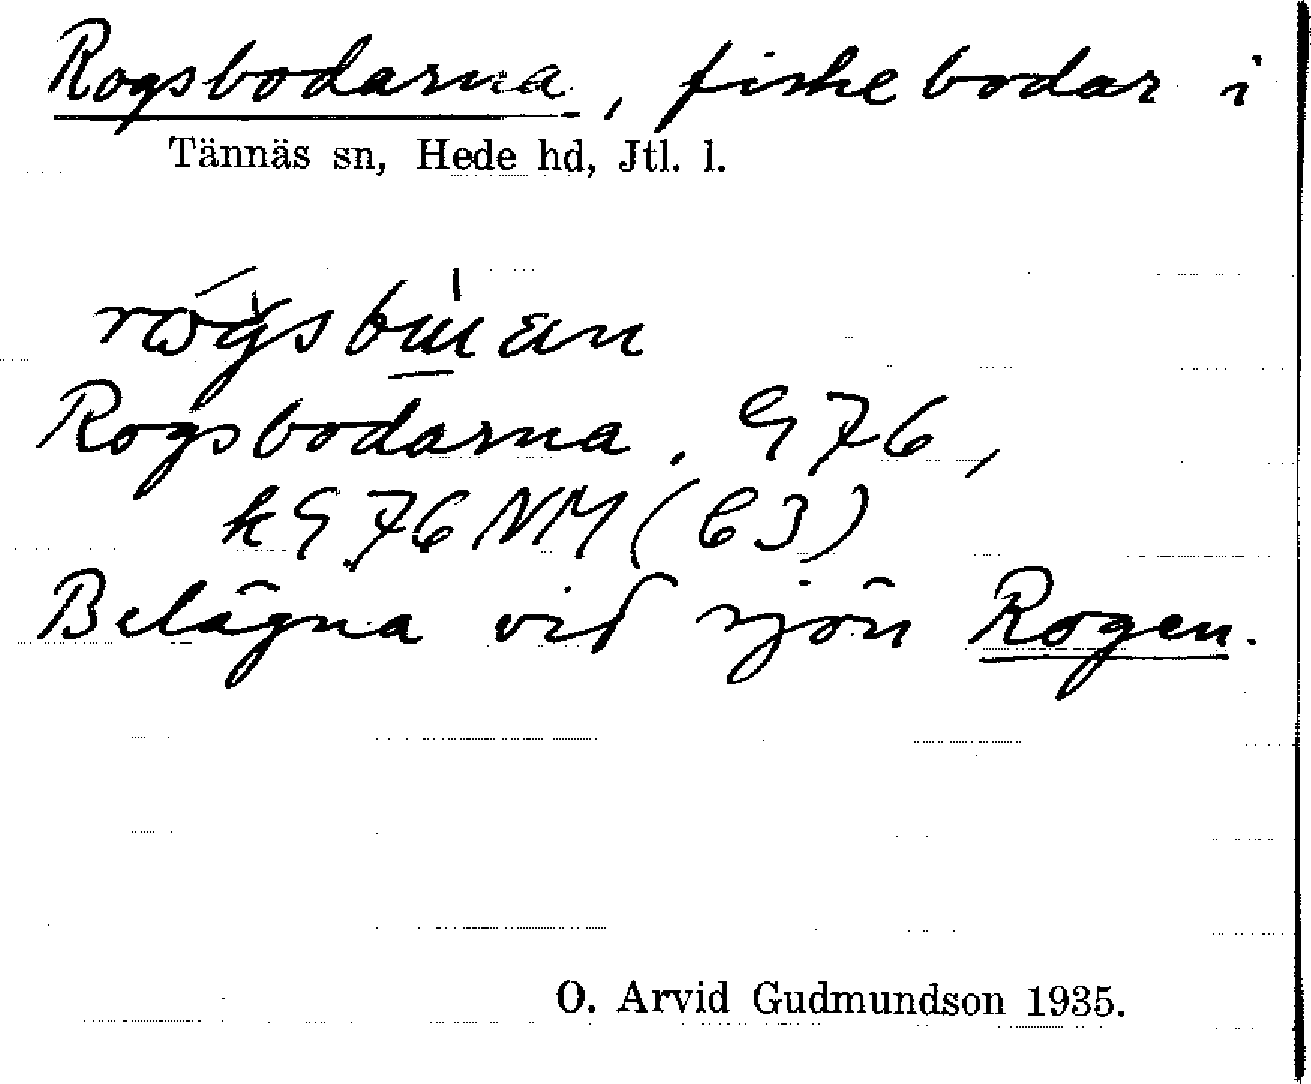 Rogsbodarna, fiskebodar i
Tännäs sn, Hede hd, Jtl. l.
Rogsbodarna. G 76,
k G 76 NM (C3)
Belägna vid sjön Rogen.
O. Arvid Gudmundson 1935.